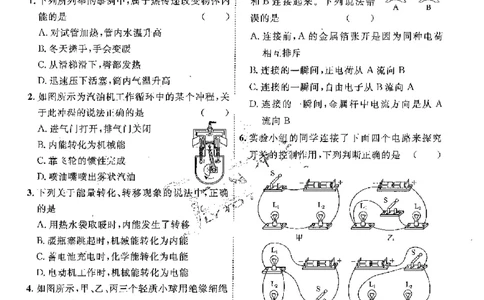 能的是 ( )
A. 对试管加热,管内水温升高
B. 冬天搓手,手会变暖
C. 从滑梯滑下,臀部发热
D. 迅速压下活塞,筒内气温升高
2. 如图所示为汽油机工作循环中的某个冲程,关
于此冲程的说法正确的是 ( )
A. 进气门打开,排气门关闭
B. 内能转化为机械能
C. 靠飞轮的惯性完成
D. 喷油嘴喷出雾状汽油
3. 下列关于能量转化、转移现象的说法中,正确
的是
A. 用热水袋取暖时,内能发生了转移
B. 暖瓶塞跳起时,机械能转化为内能
C. 蓄电池充电时,化学能转化为电能
D. 电动机工作时,机械能转化为电能
4. 如图所示,甲、乙、丙三个轻质小球用绝缘细绳
和 B 连接起来。下列说法错
误的是 ( )
A B
A. 连接前,A 的金属箔张开是因为同种电荷
相互排斥
B. 连接的一瞬间,正电荷从 A 流向 B
C. 连接的一瞬间,自由电子从 B 流向 A
D. 连接的一瞬间,金属杆中电流方向是从 A
流向 B
6. 实验小组的同学连接了下面四个电路来探究
开关的控制作用,下列判断正确的是 ( )
S
L₁ L₂
甲
S
L₁ L₂
乙
L₁
S
L₂
L₁
S
L₂